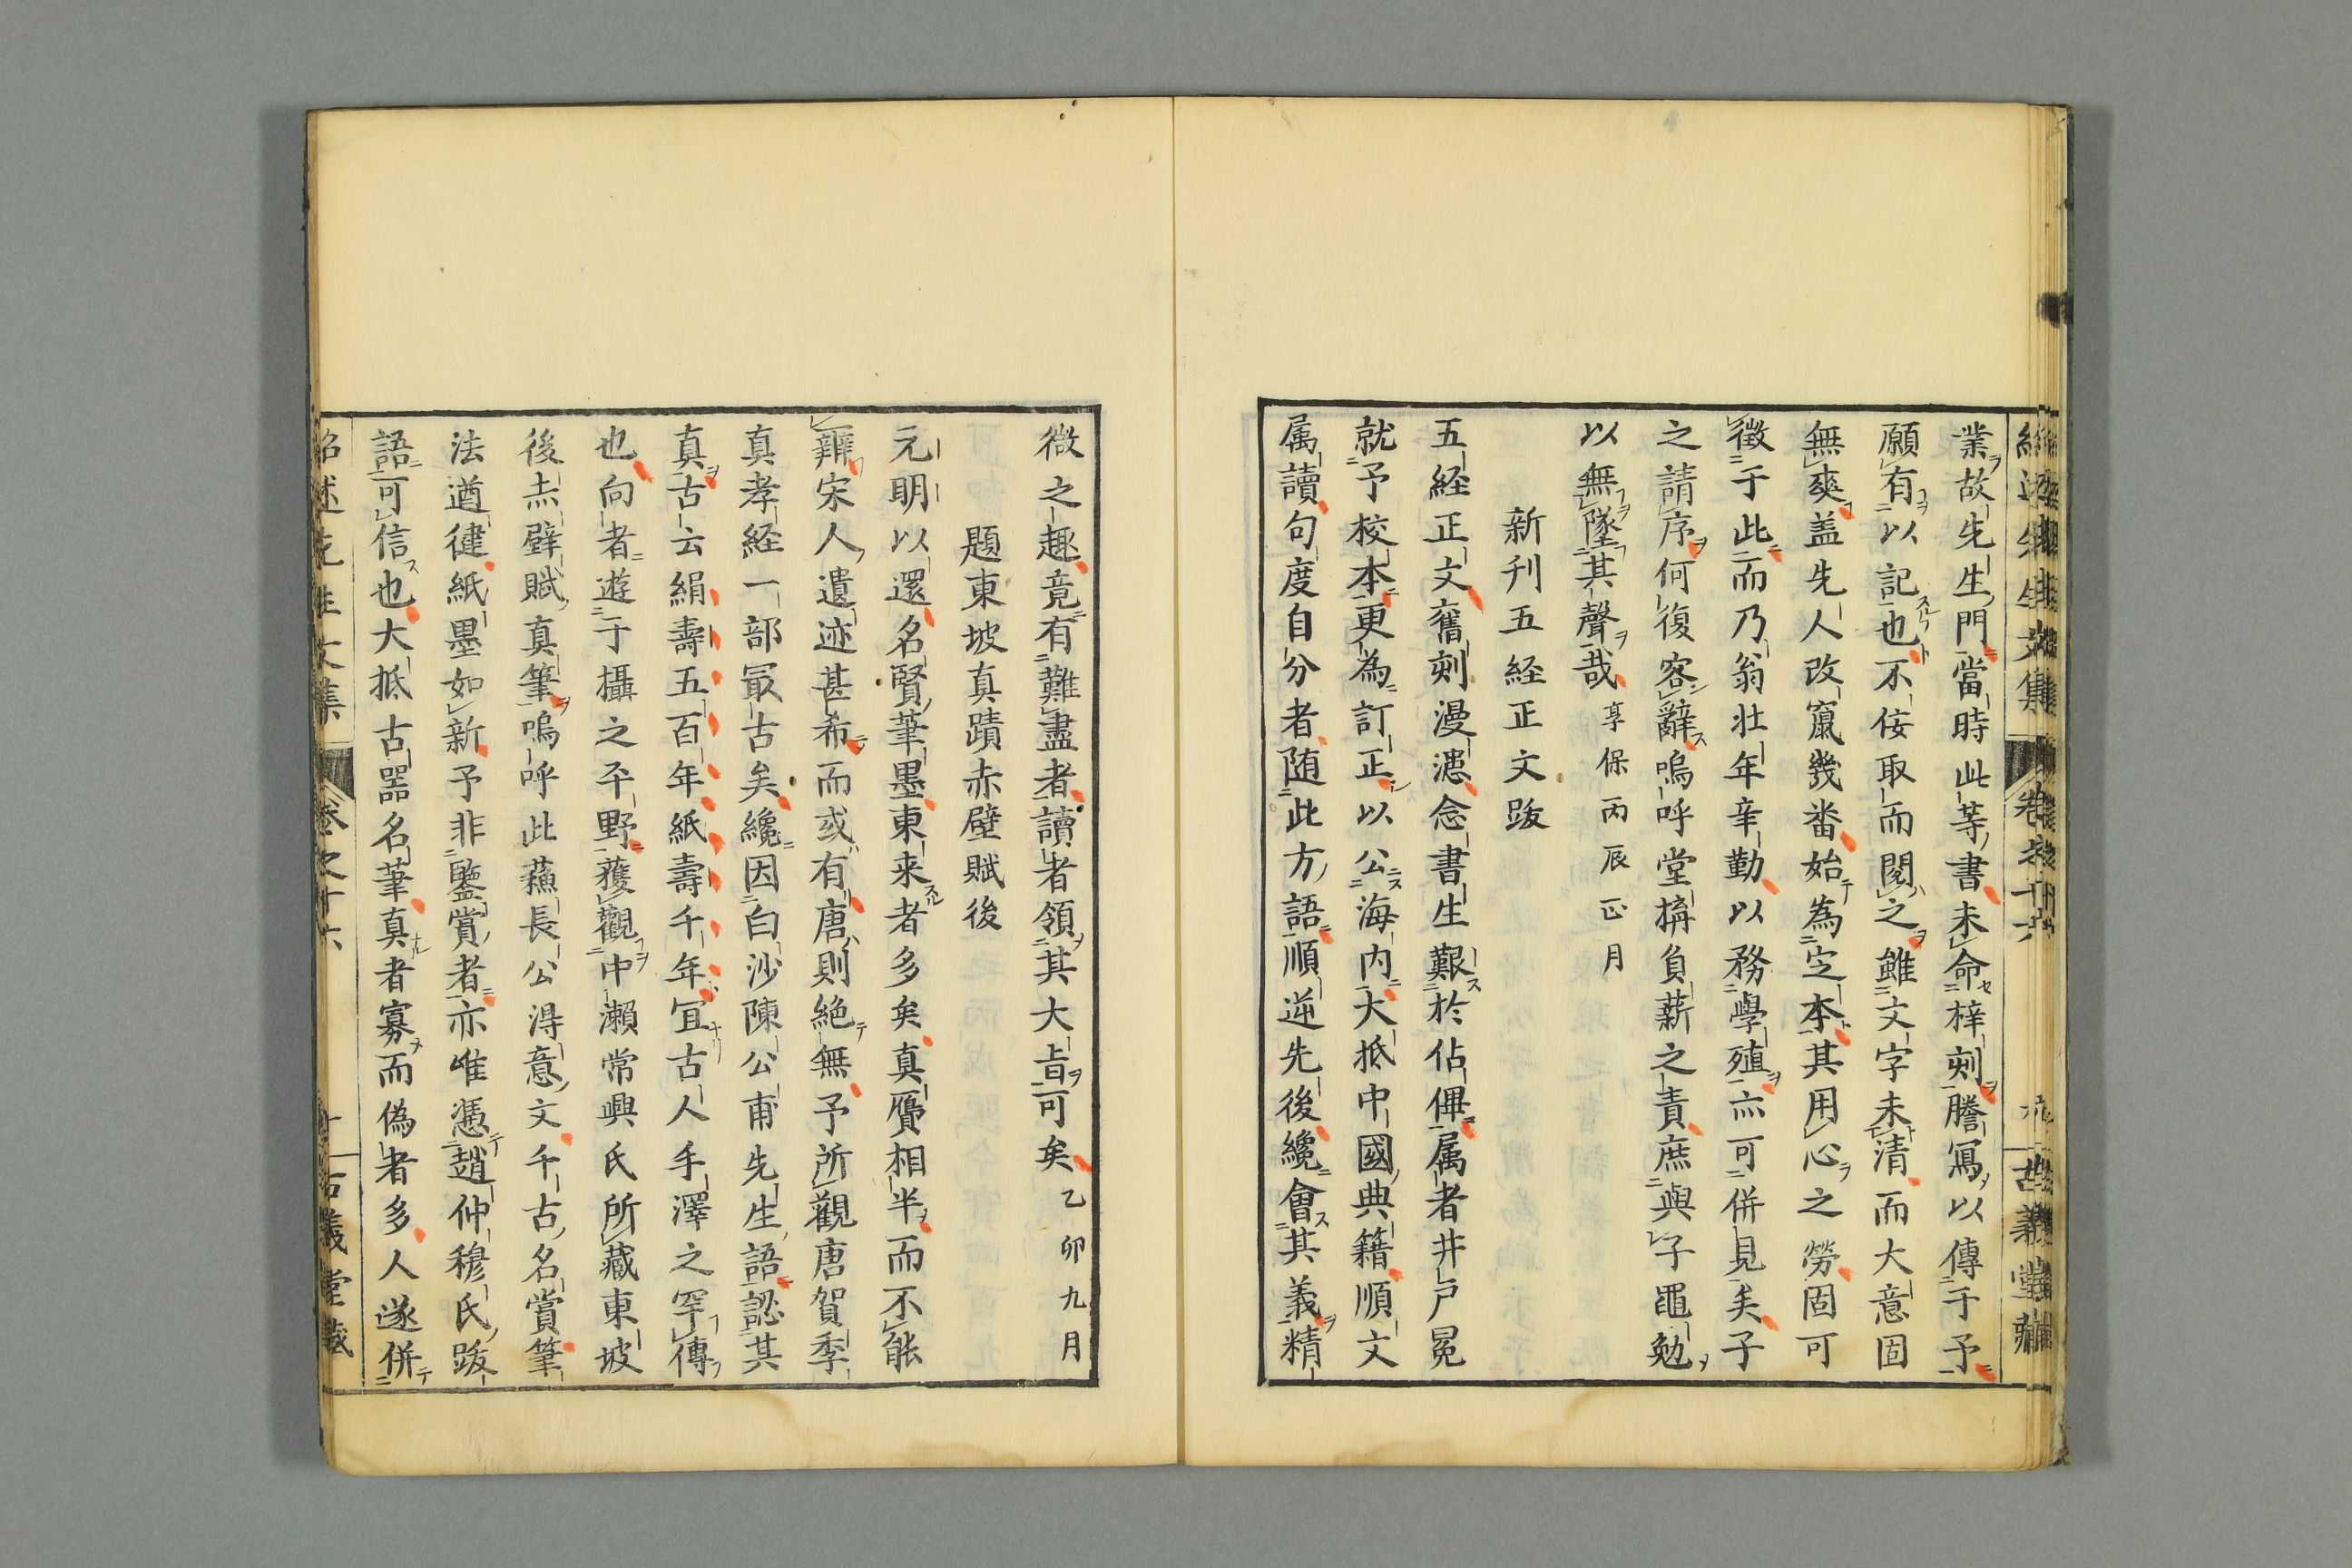 業故先生門當時此等書未命梓刻謄寫以傳于予
願有以記也不佞取而閱之雖文字未清而大意固
無爽盖先人改竄幾畨始為定本其用心之勞固可
徵于此而乃翁壮年辛勤以務學殖亦可併見矣子
之請序何復容辭嗚呼堂搆負薪之責庶與子黽勉
以無墜其聲哉 享保丙辰正月
新刊五経正文跋
五経正文舊刻漫漶念書生艱於佔俾属者井戸冕
就予校本更為訂正以公海内大抵中國典籍順文
属讀句度自分者随此方語順逆先後纔會其義精
微之趣竟有難盡者讀者領其大旨可矣 乙卯九月
題東坡真蹟赤壁賦後
元明以還名賢筆墨東来者多矣真贋相半而不能
辨宋人遺迹甚希而或有唐則絶無予所觀唐賀季
真孝経一部最古矣纔因白沙陳公甫先生語認其
真古云絹壽五百年紙壽千年冝古人手澤之罕傳
也向者遊于攝之平野獲觀中瀬常興氏所藏東坡
後赤壁賦真筆嗚呼此蘓長公得意文千古名賞筆
法遒健紙墨如新予非鑒賞者亦唯憑趙仲穆氏跋
語可信也大抵古器名筆真者寡而偽者多人遂併
紹述先生文集 卷之十六 古義堂藏